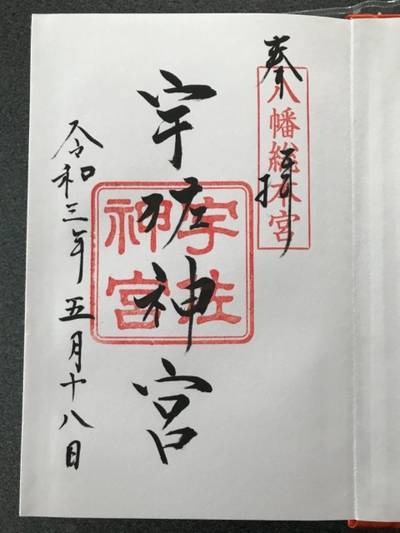 奉拝
八幡総本宮
宇佐神宮
宇佐神宮
令和三年五月十八日